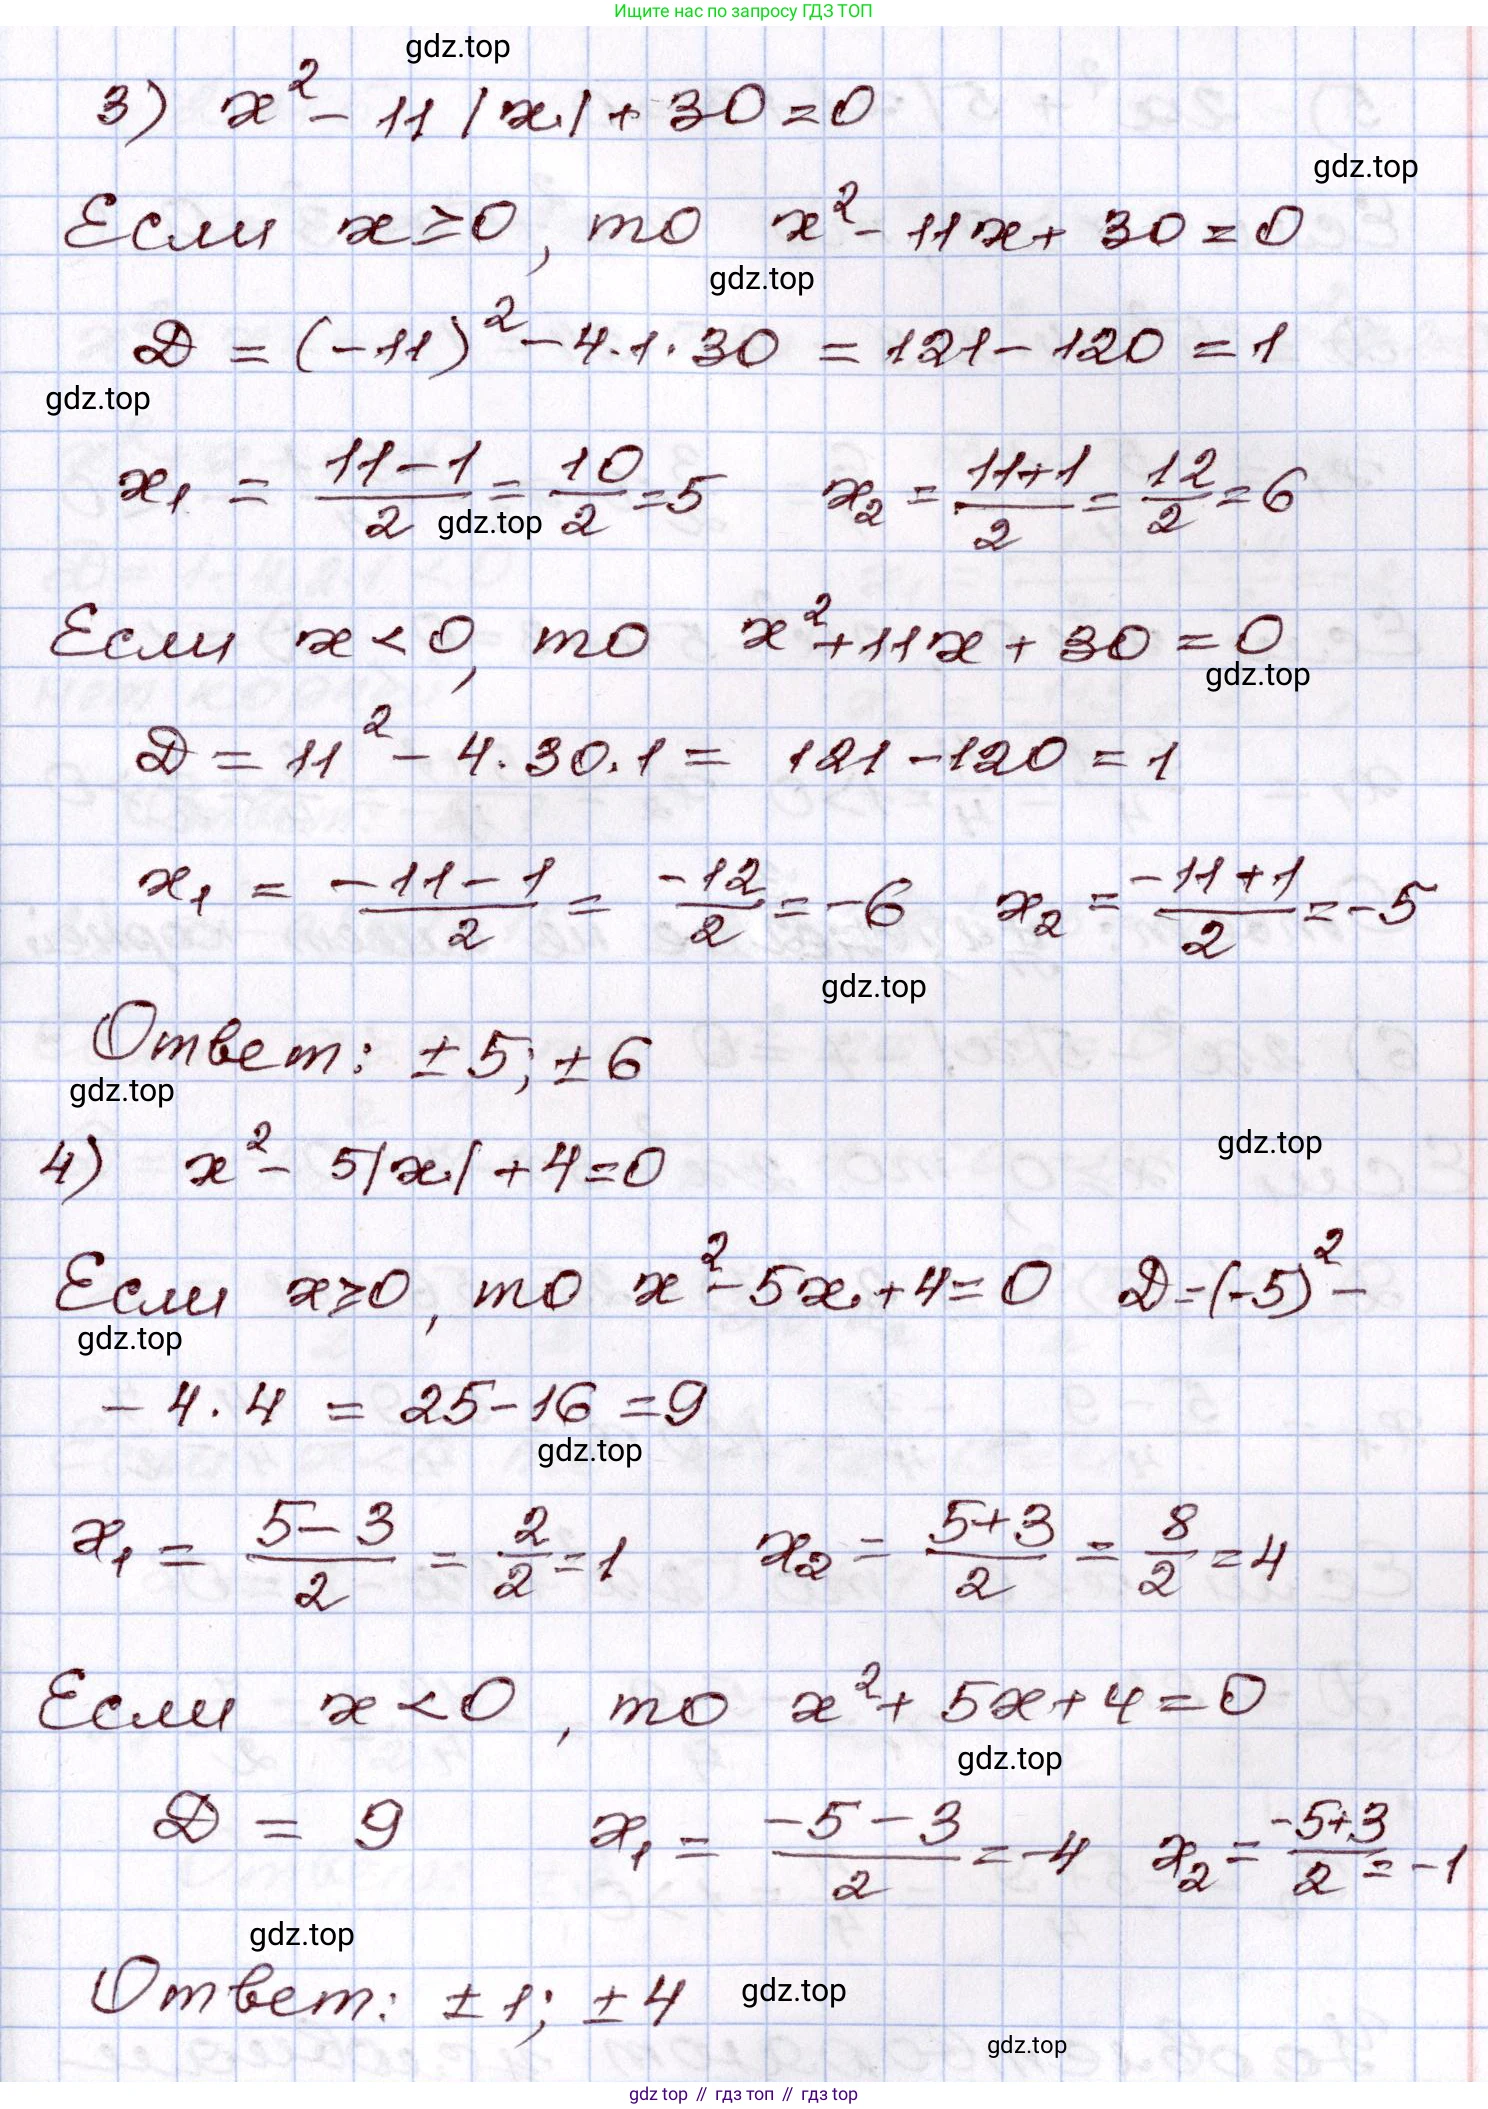 Ищите нас по запросу ГДЗ ТОП
gdz.top
3) x² - 11|x| + 30 = 0
gdz.top
Если x ≥ 0, то x² - 11x + 30 = 0
gdz.top
D = (-11)² - 4·1·30 = 121 - 120 = 1
gdz.top
x₁ = (11-1)/2 = 10/2 = 5 x₂ = (11+1)/2 = 12/2 = 6
gdz.top
Если x < 0, то x² + 11x + 30 = 0
gdz.top
D = 11² - 4·30·1 = 121 - 120 = 1
x₁ = (-11-1)/2 = -12/2 = -6 x₂ = (-11+1)/2 = -5
gdz.top
Ответ: ±5; ±6
gdz.top
gdz.top
4) x² - 5|x| + 4 = 0
Если x ≥ 0, то x² - 5x + 4 = 0 D = (-5)² -
gdz.top
- 4·4 = 25 - 16 = 9
gdz.top
x₁ = (5-3)/2 = 2/2 = 1 x₂ = (5+3)/2 = 8/2 = 4
Если x < 0, то x² + 5x + 4 = 0
gdz.top
D = 9 x₁ = (-5-3)/2 = -4 x₂ = (-5+3)/2 = -1
gdz.top
Ответ: ±1; ±4
gdz.top
gdz.top
gdz top // гдз топ // гдз top